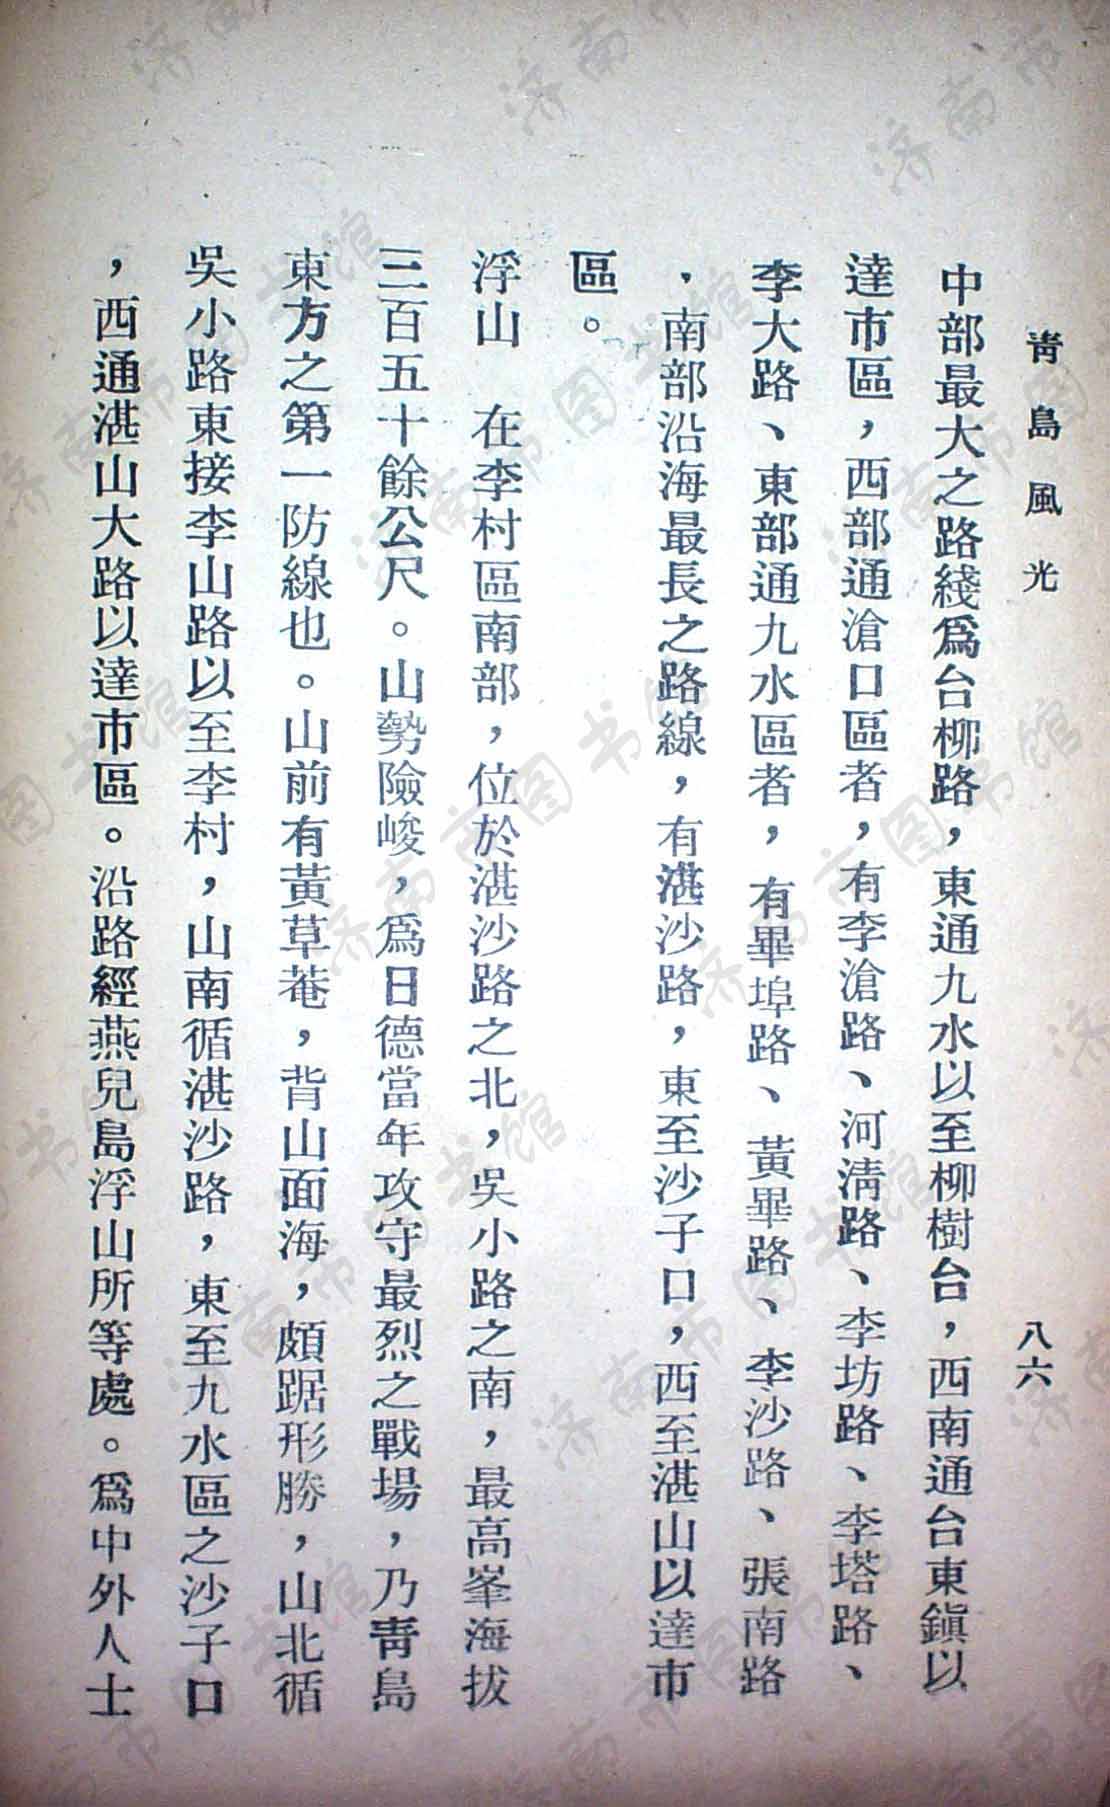 青島風光
八六
中部最大之路綫爲台柳路，東通九水以至柳樹台，西南通台東鎭以
達市區，西部通滄口區者，有李滄路、河淸路、李坊路、李塔路、
李大路、東部通九水區者，有畢埠路、黃畢路、李沙路、張南路
，南部沿海最長之路線，有湛沙路，東至沙子口，西至湛山以達市
區。
浮山　在李村區南部，位於湛沙路之北，吳小路之南，最高峯海拔
三百五十餘公尺。山勢險峻，爲日德當年攻守最烈之戰場，乃靑島
東方之第一防線也。山前有黃草菴，背山面海，頗踞形勝，山北循
吳小路東接李山路以至李村，山南循湛沙路，東至九水區之沙子口
，西通湛山大路以達市區。沿路經燕兒島浮山所等處。爲中外人士
济南市图书馆